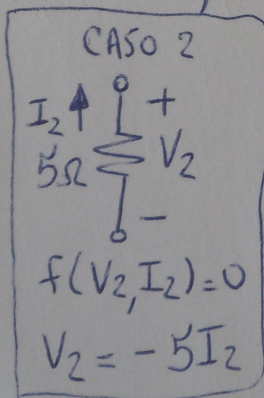 CASO 2
I₂ +
5Ω V₂
−
f(V₂,I₂)=0
V₂ = -5I₂